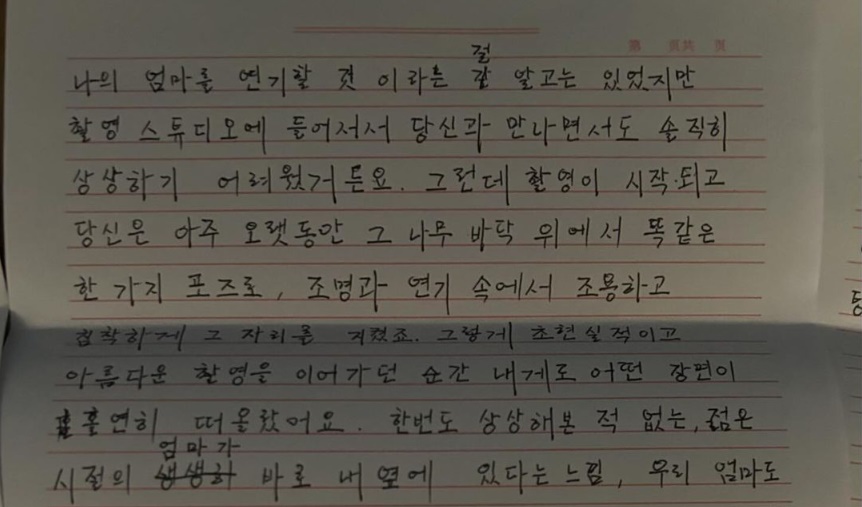 頁 共頁 第
절
나의 엄마를 연기할 것 이라는 걸 알고는 있었지만
촬영 스튜디오에 들어서서 당신과 만나면서도 솔직히
상상하기 어려웠거든요. 그런데 촬영이 시작되고
당신은 아주 오랫동안 그 나무 바닥 위에서 똑같은
한 가지 포즈로, 조명과 연기 속에서 조용하고
침착하게 그 자리를 지켰죠. 그렇게 초현실적이고
아름다운 촬영을 이어가던 순간 내게로 어떤 장면이
홀연히 떠올랐어요. 한번도 상상해본 적 없는, 젊은
엄마가
시절의 생생히 바로 내 옆에 있다는 느낌, 우리 엄마도